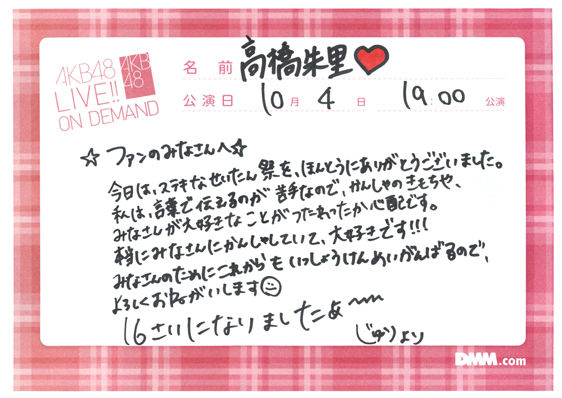 AKB48
LIVE!!
ON DEMAND
AKB
48
名 前 高橋朱里♥
公演日 10月 4日 19:00 公演
☆ ファンのみなさんへ☆
今日は、ステキなせいたん祭を、ほんとうにありがとうございました。
私は、言葉で伝えるのが苦手なので、かんしゃのきもちや、
みなさんが大好きなことがつたわったか心配です。
本当にみなさんにかんしゃしていて、大好きです!!!
みなさんのためにこれからもいっしょうけんめいがんばるので、
よろしくおねがいします☺
16さいになりましたよ~~
じゅりより
DMM.com